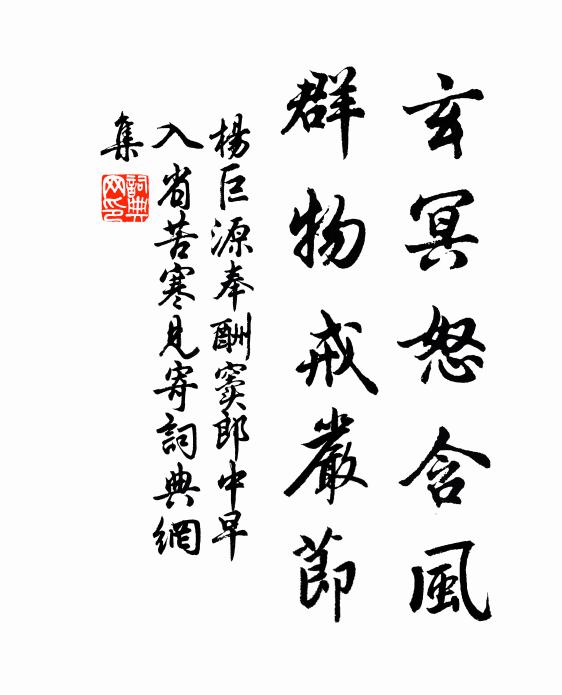 玄冥怒含風
群物戒嚴節
楊巨源奉酬竇郎中早
入省苦寒見寄詞典網
集
詞典網印